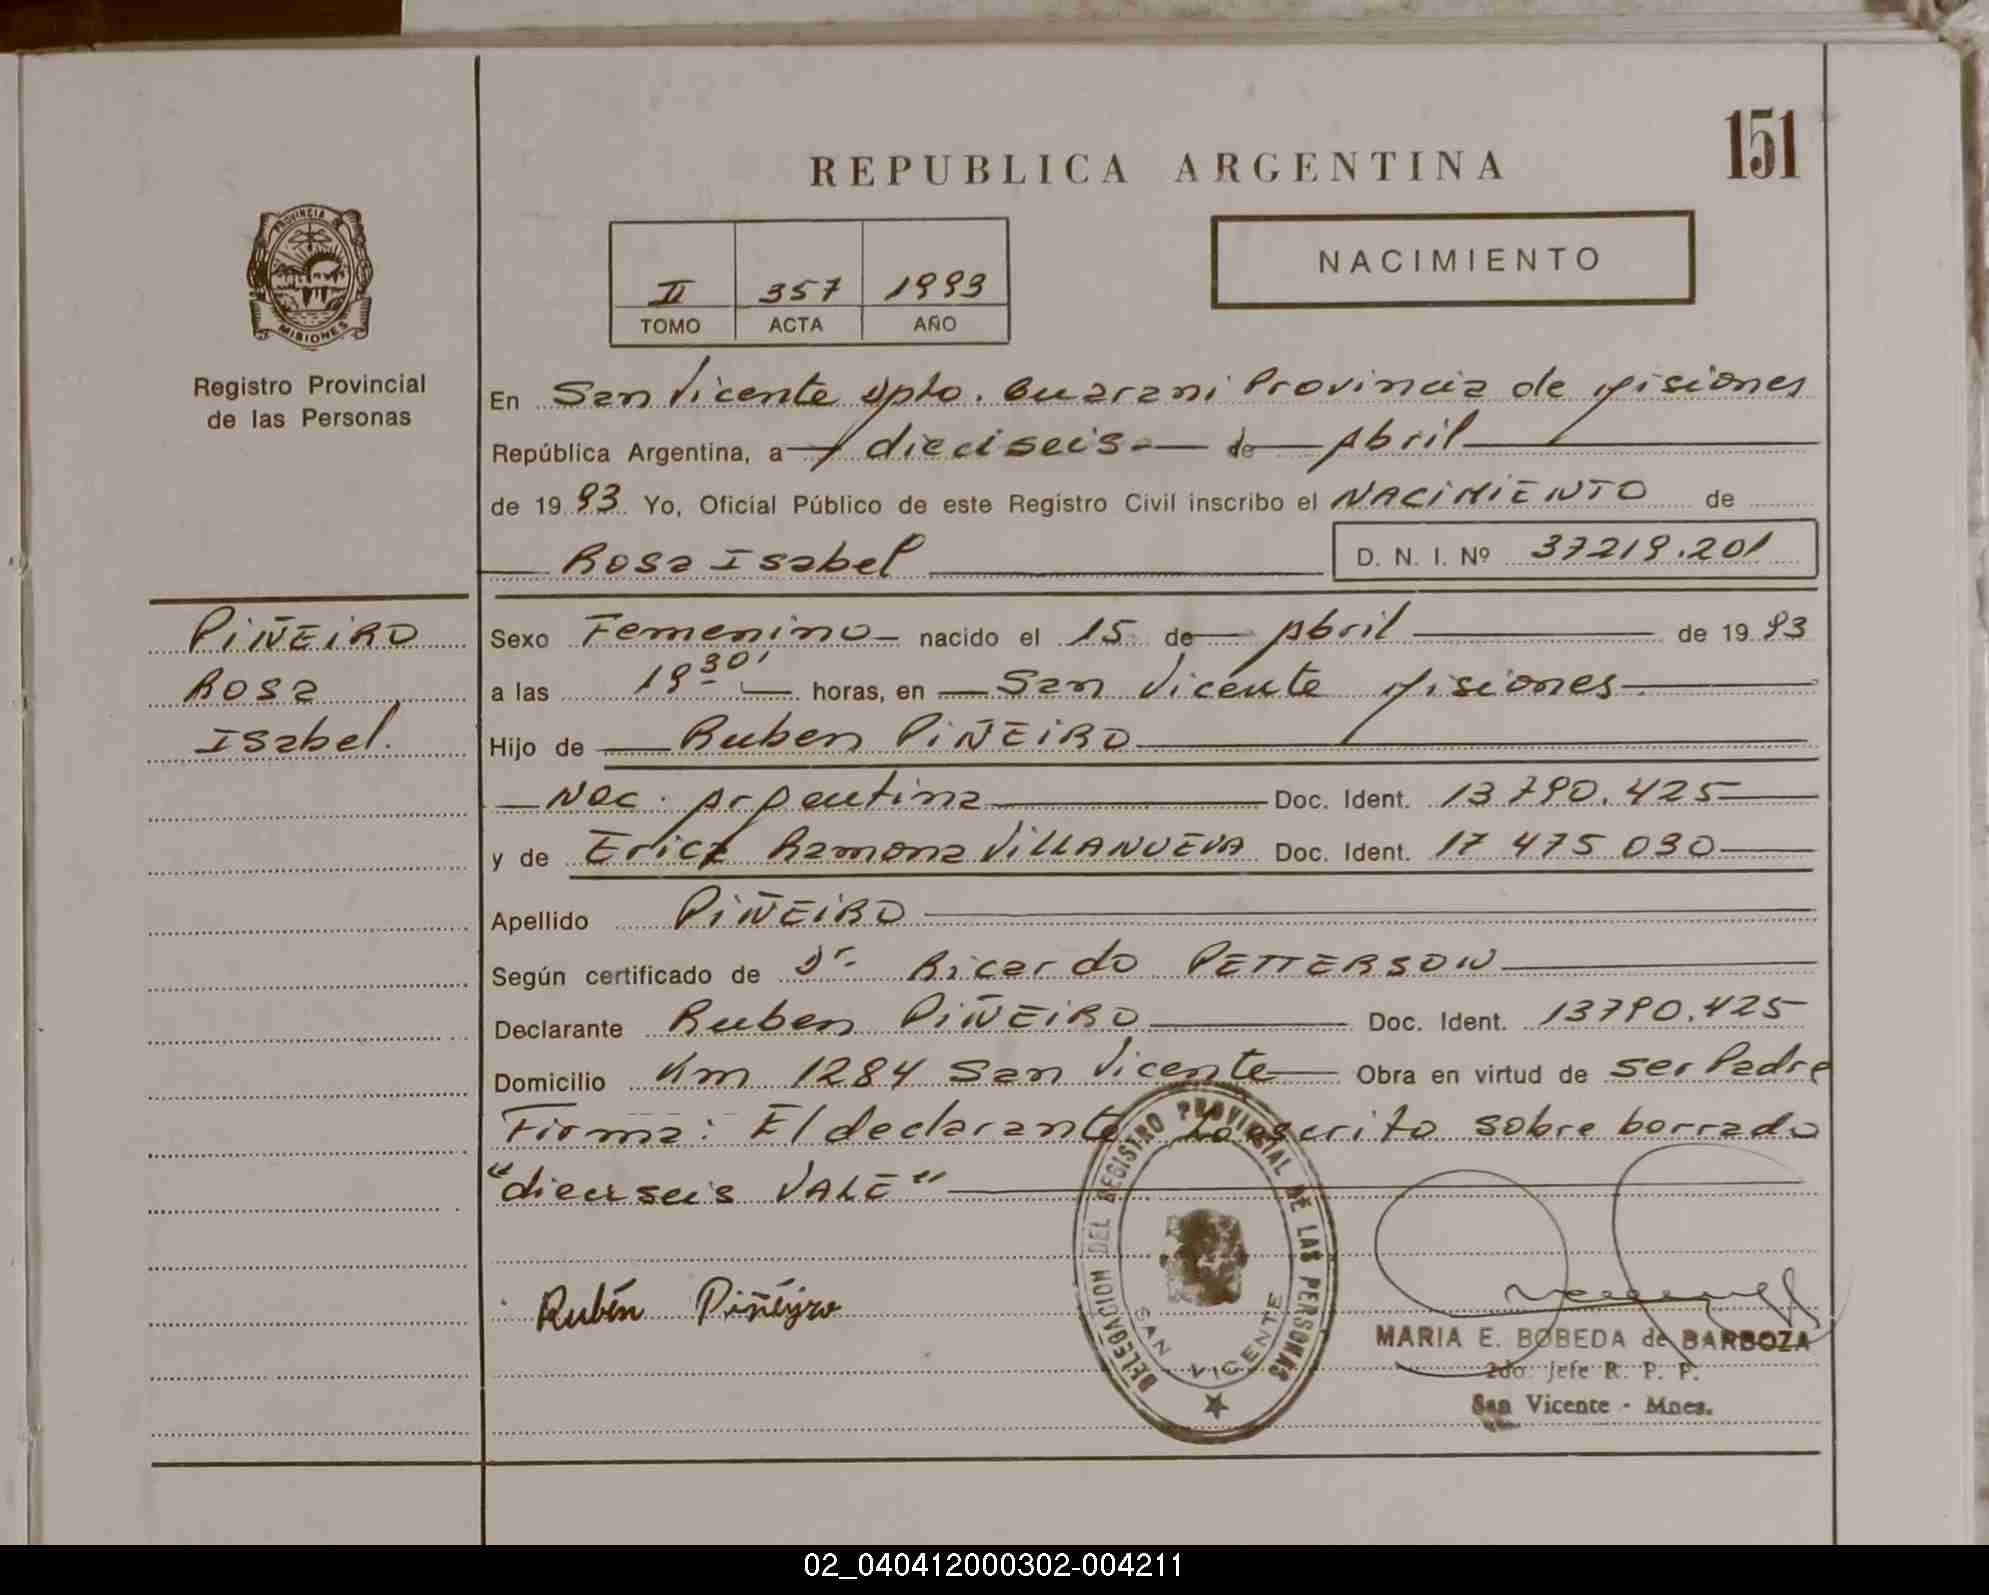 151
REPUBLICA ARGENTINA
PROVINCIA DE
MISIONES
Registro Provincial
de las Personas
II 357 1993
TOMO ACTA AÑO
NACIMIENTO
En San Vicente Dpto. Guarani Provincia de Misiones
República Argentina, a dieciseis de Abril
de 1993 Yo, Oficial Público de este Registro Civil inscribo el NACIMIENTO de
Rosa Isabel D. N. I. Nº 37219.201
PIÑEIRO
Rosa
Isabel.
Sexo Femenino nacido el 15 de Abril de 1993
a las 19 30' horas, en San Vicente Misiones
Hijo de Ruben PIÑEIRO
Nac. Argentina Doc. Ident. 13790.425
y de Erica Ramona VILLANUEVA Doc. Ident. 17 475 030
Apellido PIÑEIRO
Según certificado de Dr. Ricardo PETTERSON
Declarante Ruben PIÑEIRO Doc. Ident. 13790.425
Domicilio Km 1284 San Vicente Obra en virtud de ser Padre
Firma: El declarante. Lo escrito sobre borrado
"dieciseis VALE"
Rubén Piñéyro
DELEGACION DEL REGISTRO PROVINCIAL DE LAS PERSONAS
SAN VICENTE
MARIA E. BOBEDA de BARBOZA
2do. Jefe R. P. P.
San Vicente - Mnes.
02_040412000302-004211